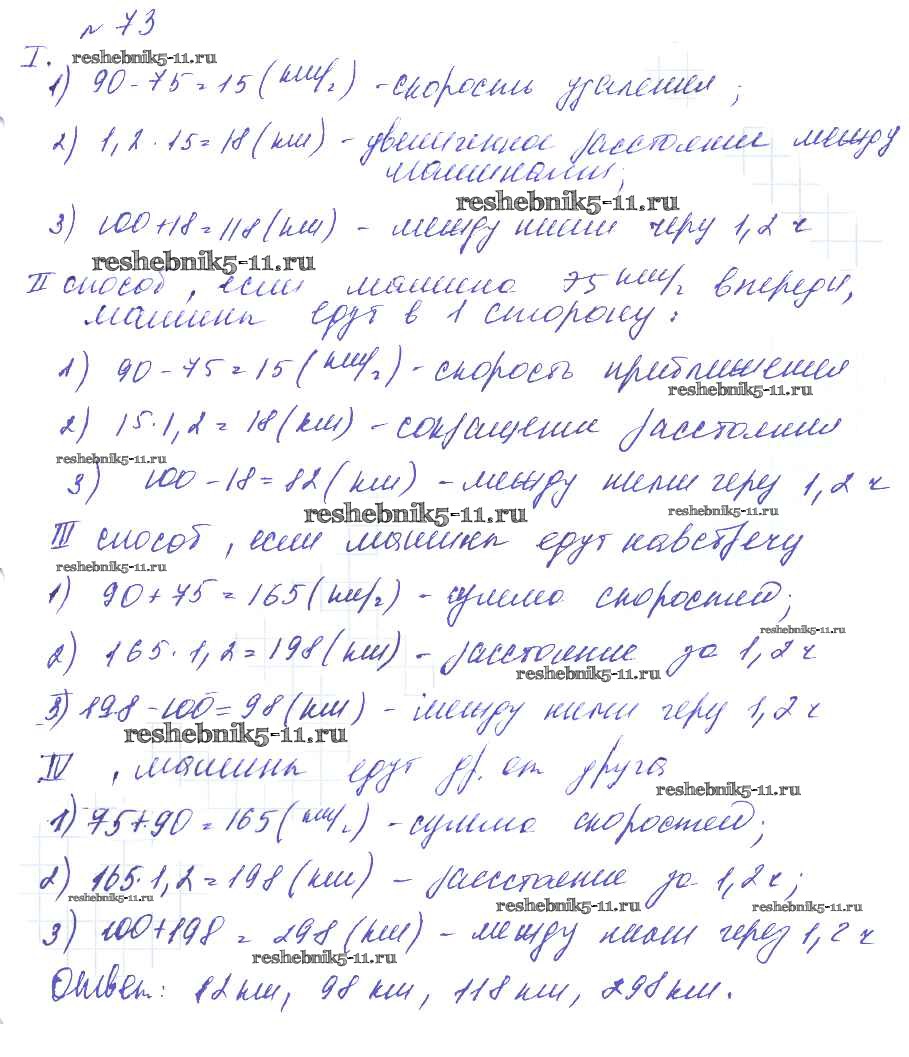 № 73
I. reshebnik5-11.ru
1) 90 - 75 = 15 (км/ч) - скорость удаления;
2) 1,2 · 15 = 18 (км) - увеличенное расстояние между
машинами;
reshebnik5-11.ru
3) 100 + 18 = 118 (км) - между ними через 1,2 ч
reshebnik5-11.ru
II способ, если машина 75 км/ч впереди,
машины едут в 1 сторону:
1) 90 - 75 = 15 (км/ч) - скорость приближения
reshebnik5-11.ru
2) 15 · 1,2 = 18 (км) - сокращение расстояния
reshebnik5-11.ru
3) 100 - 18 = 82 (км) - между ними через 1,2 ч
reshebnik5-11.ru reshebnik5-11.ru
III способ, если машины едут навстречу
reshebnik5-11.ru
1) 90 + 75 = 165 (км/ч) - сумма скоростей;
reshebnik5-11.ru
2) 165 · 1,2 = 198 (км) - расстояние за 1,2 ч
reshebnik5-11.ru
3) 198 - 100 = 98 (км) - между ними через 1,2 ч
reshebnik5-11.ru
IV , машины едут др. от друга
reshebnik5-11.ru
1) 75 + 90 = 165 (км/ч) - сумма скоростей;
2) 165 · 1,2 = 198 (км) - расстояние за 1,2 ч;
reshebnik5-11.ru reshebnik5-11.ru reshebnik5-11.ru
3) 100 + 198 = 298 (км) - между ними через 1,2 ч
reshebnik5-11.ru
Ответ: 82 км, 98 км, 118 км, 298 км.